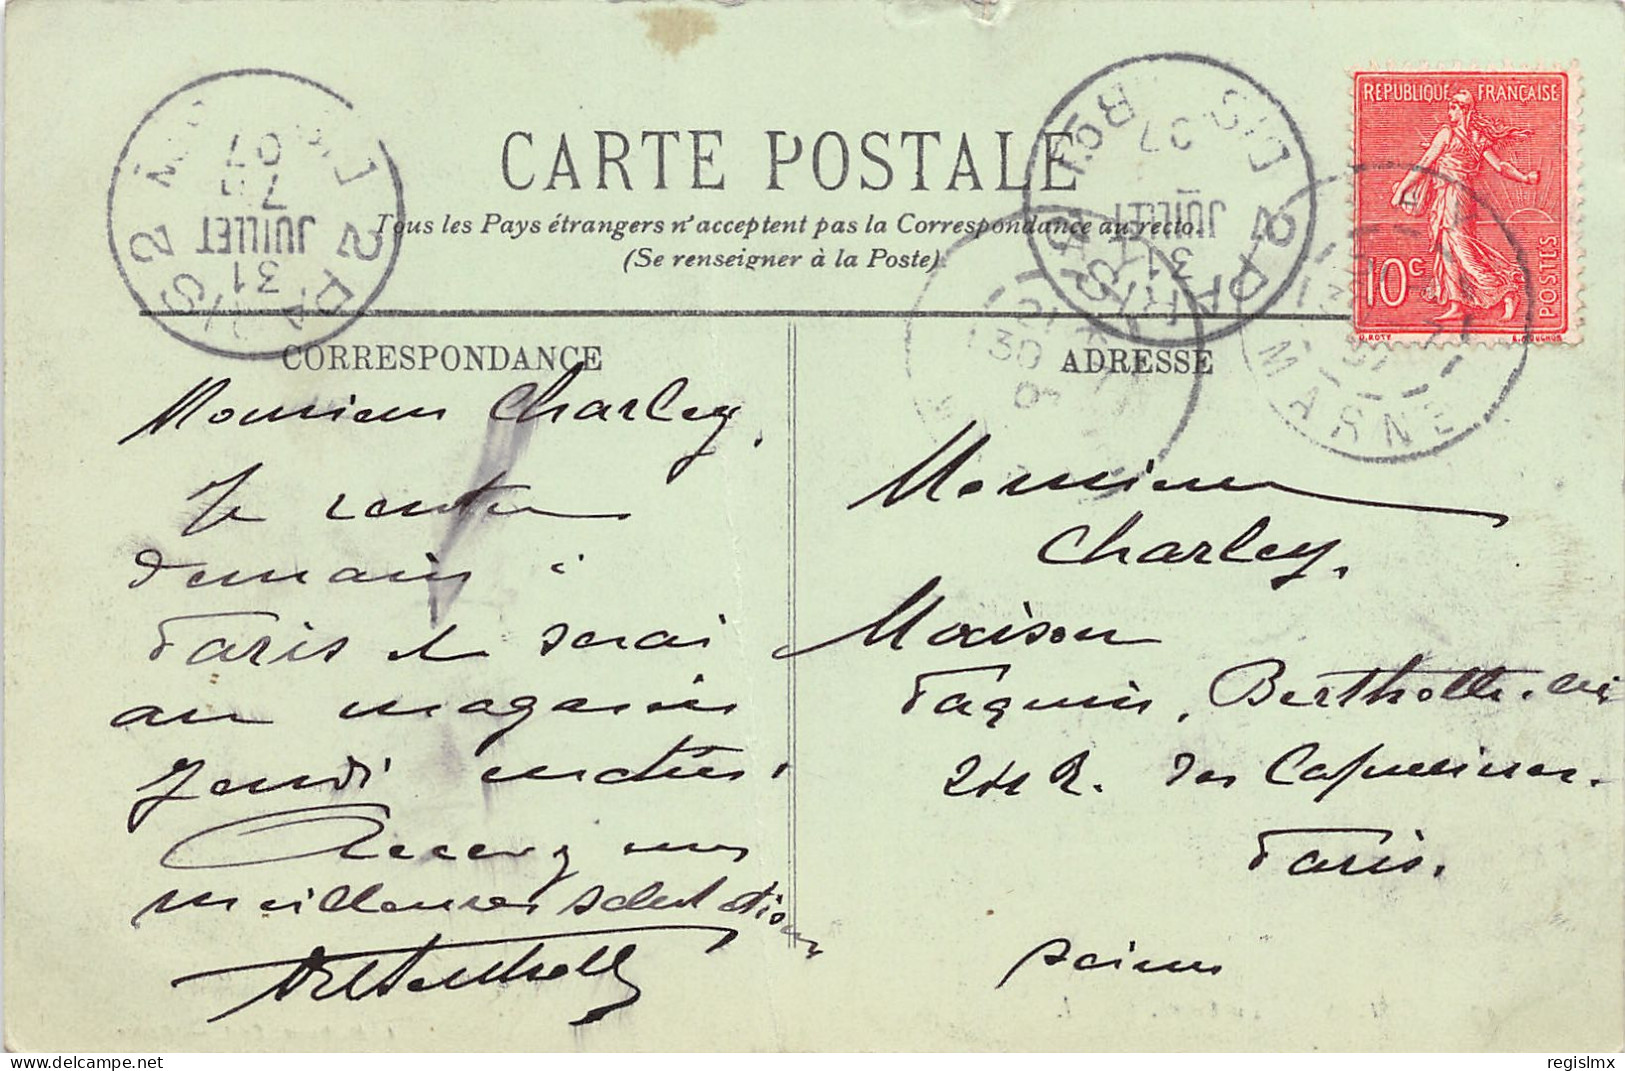 CARTE POSTALE
Tous les Pays étrangers n'acceptent pas la Correspondance au recto.
(Se renseigner à la Poste)
REPUBLIQUE FRANÇAISE
10c
POSTES
O. ROTY
PARIS 2
31
JUILLET
07
PARIS 2
31
JUILLET
07
30
MARNE
CORRESPONDANCE
Monsieur Charley,
Je rentre
demain à
Paris et serai
au magasin
Jeudi matin.
Recevez mes
meilleures salutations
ADRESSE
Monsieur
Charley,
Maison
Paquin, Berthollé
24 R. des Capucines.
Paris.
Seine
regislmx